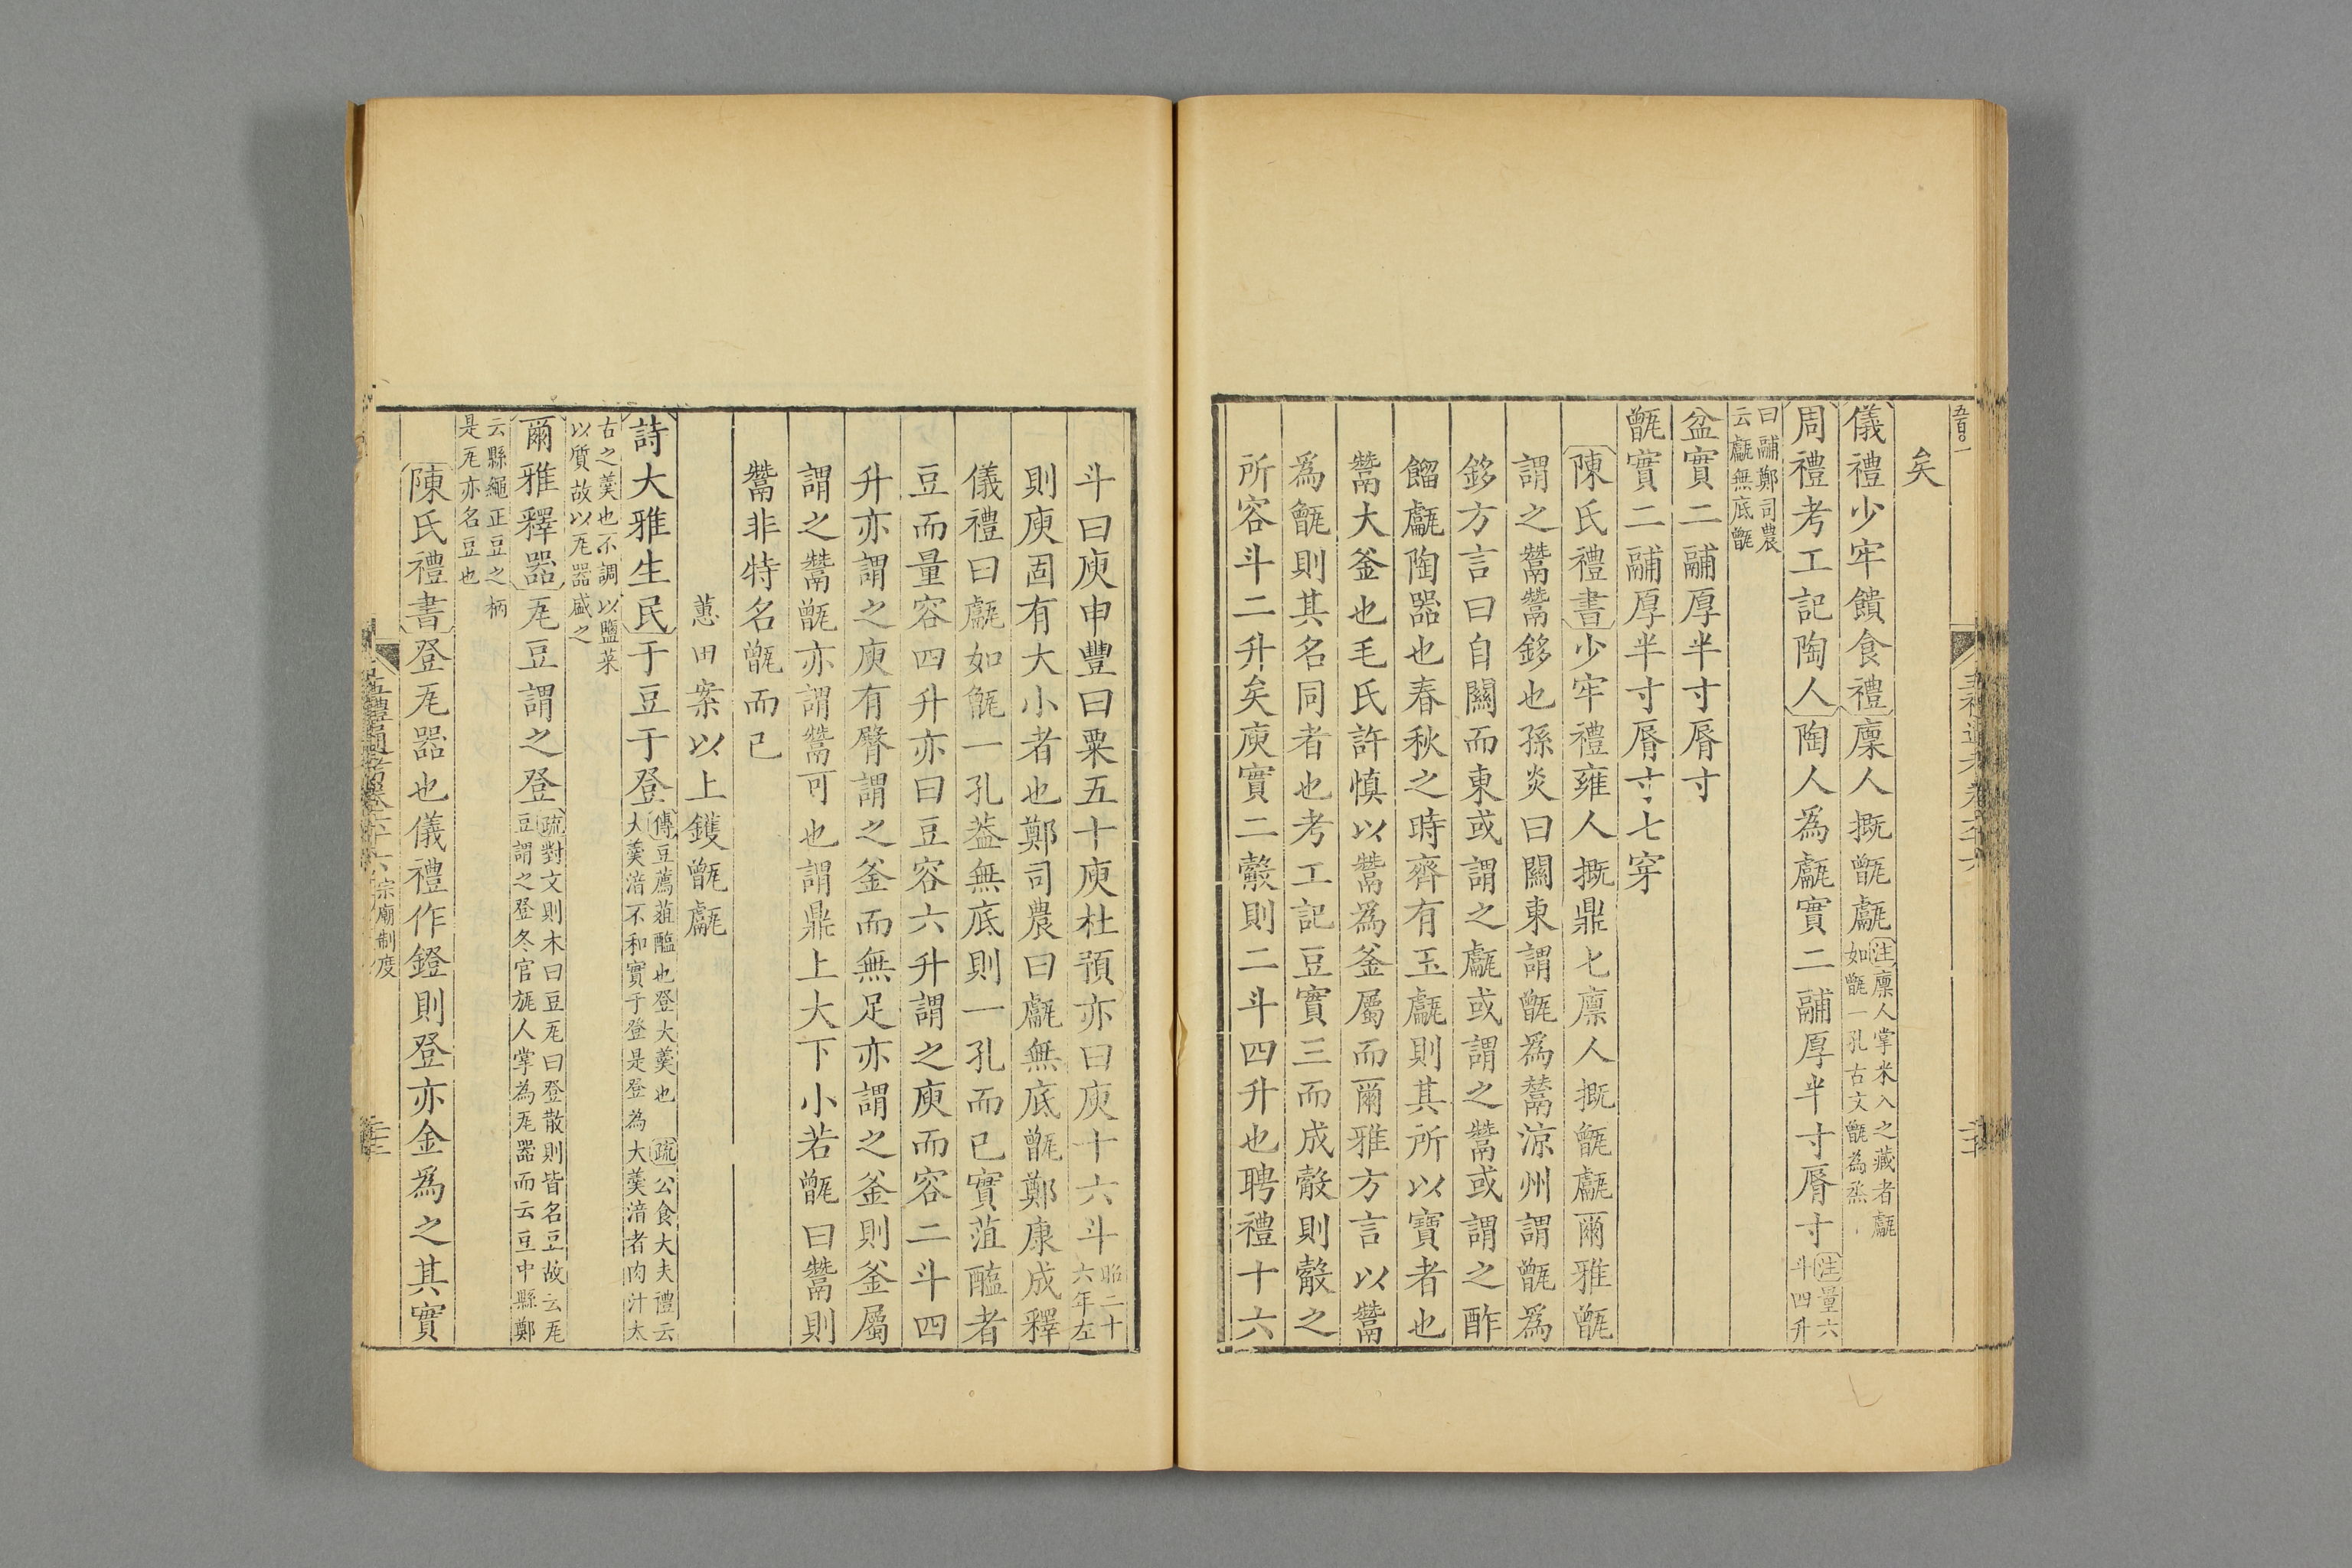 矣
儀禮少牢饋食禮廩人摡甑甗注廩人掌米入之藏者甗
如甑一孔古文甑為烝
周禮考工記陶人陶人為甗實二鬴厚半寸脣寸注量六
斗四升
曰鬴鄭司農
云甗無底甑
盆實二鬴厚半寸脣寸
甑實二鬴厚半寸脣寸七穿
陳氏禮書少牢禮雍人摡鼎匕廩人摡甑甗爾雅甑
謂之鬵鬵鉹也孫炎曰關東謂甑爲鬵涼州謂甑爲
鉹方言曰自關而東或謂之甗或謂之鬵或謂之酢
餾甗陶器也春秋之時齊有玉甗則其所以寶者也
鬵大釜也毛氏許慎以鬵爲釜屬而爾雅方言以鬵
爲甑則其名同者也考工記豆實三而成觳則觳之
所容斗二升矣庾實二觳則二斗四升也聘禮十六
斗曰庾申豐曰粟五十庾杜預亦曰庾十六斗昭二十
六年左
則庾固有大小者也鄭司農曰甗無底甑鄭康成釋
儀禮曰甗如甑一孔葢無底則一孔而已實菹醢者
豆而量容四升亦曰豆容六升謂之庾而容二斗四
升亦謂之庾有臀謂之釜而無足亦謂之釜則釜屬
謂之鬵甑亦謂鬵可也謂鼎上大下小若甑曰鬵則
鬵非特名甑而已
蕙田案以上鑊甑甗
詩大雅生民于豆于登傳豆薦菹醢也登大羹也 疏公食大夫禮云
大羹湆不和實于登是登為大羹湆者肉汁太
古之羹也不調以鹽菜
以質故以瓦器盛之
爾雅釋器瓦豆謂之登疏對文則木曰豆瓦曰登散則皆名豆故云瓦
豆謂之登冬官旊人掌為瓦器而云豆中縣鄭
云縣繩正豆之柄
是瓦亦名豆也
陳氏禮書登瓦器也儀禮作鐙則登亦金爲之其實
五禮通考卷六十六 宗廟制度